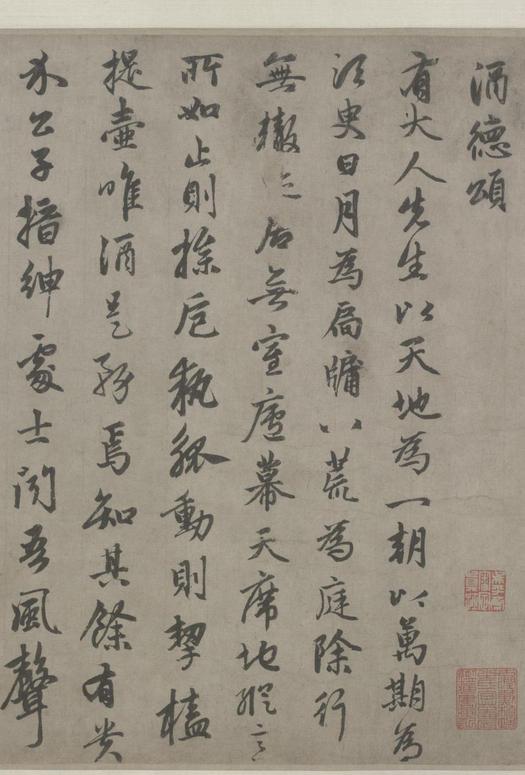 酒德頌
有大人先生以天地為一朝以萬期為
須臾日月為扃牖八荒為庭除行
無轍迹居無室廬幕天席地縱意
所如止則操卮執觚動則挈榼
提壺唯酒是務焉知其餘有貴
介公子搢紳處士聞吾風聲